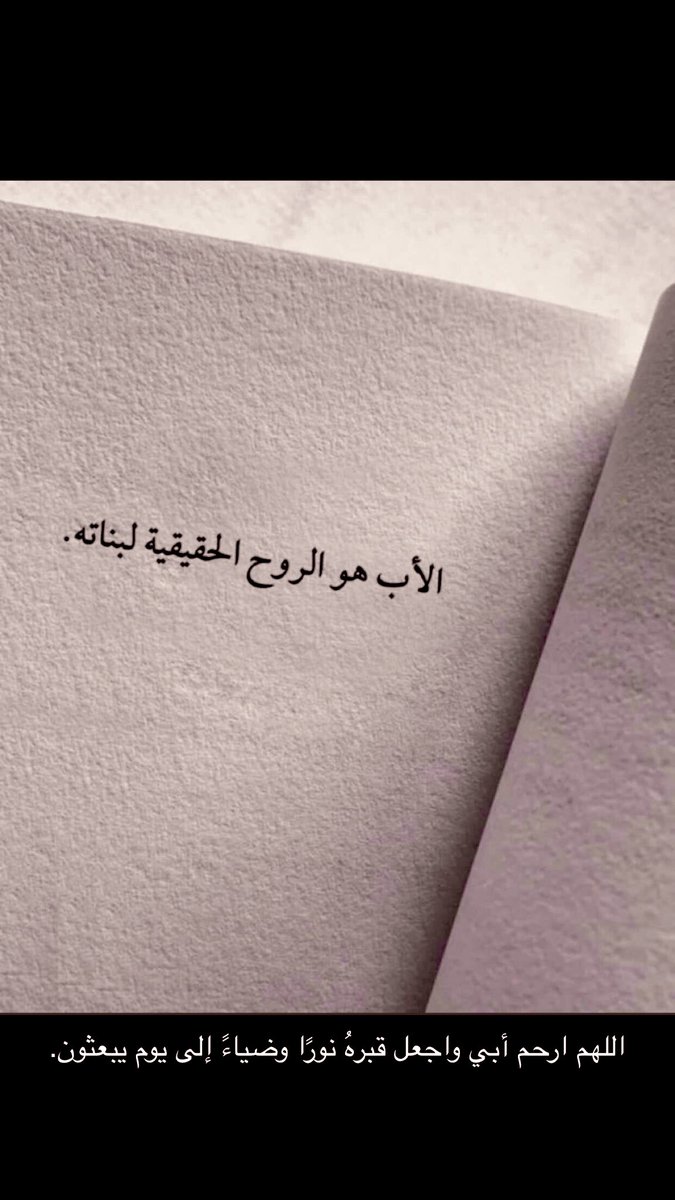 الأب هو الروح الحقيقية لبناته.
اللهم ارحم أبي واجعل قبرهُ نورًا وضياءً إلى يوم يبعثون.